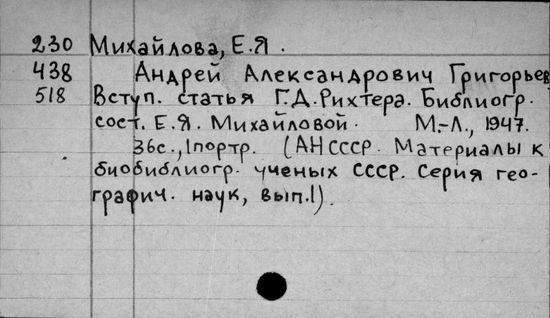 230 Михайлова, Е.Я.
438 Андрей Александрович Григорьев
518 Вступ. статья Г.Д.Рихтера. Библиогр.
сост. Е.Я. Михайловой. М.-Л., 1947.
36с., 1портр. (АН СССР. Материалы к
биобиблиогр. ученых СССР. Серия гео-
графич. наук, вып.1).